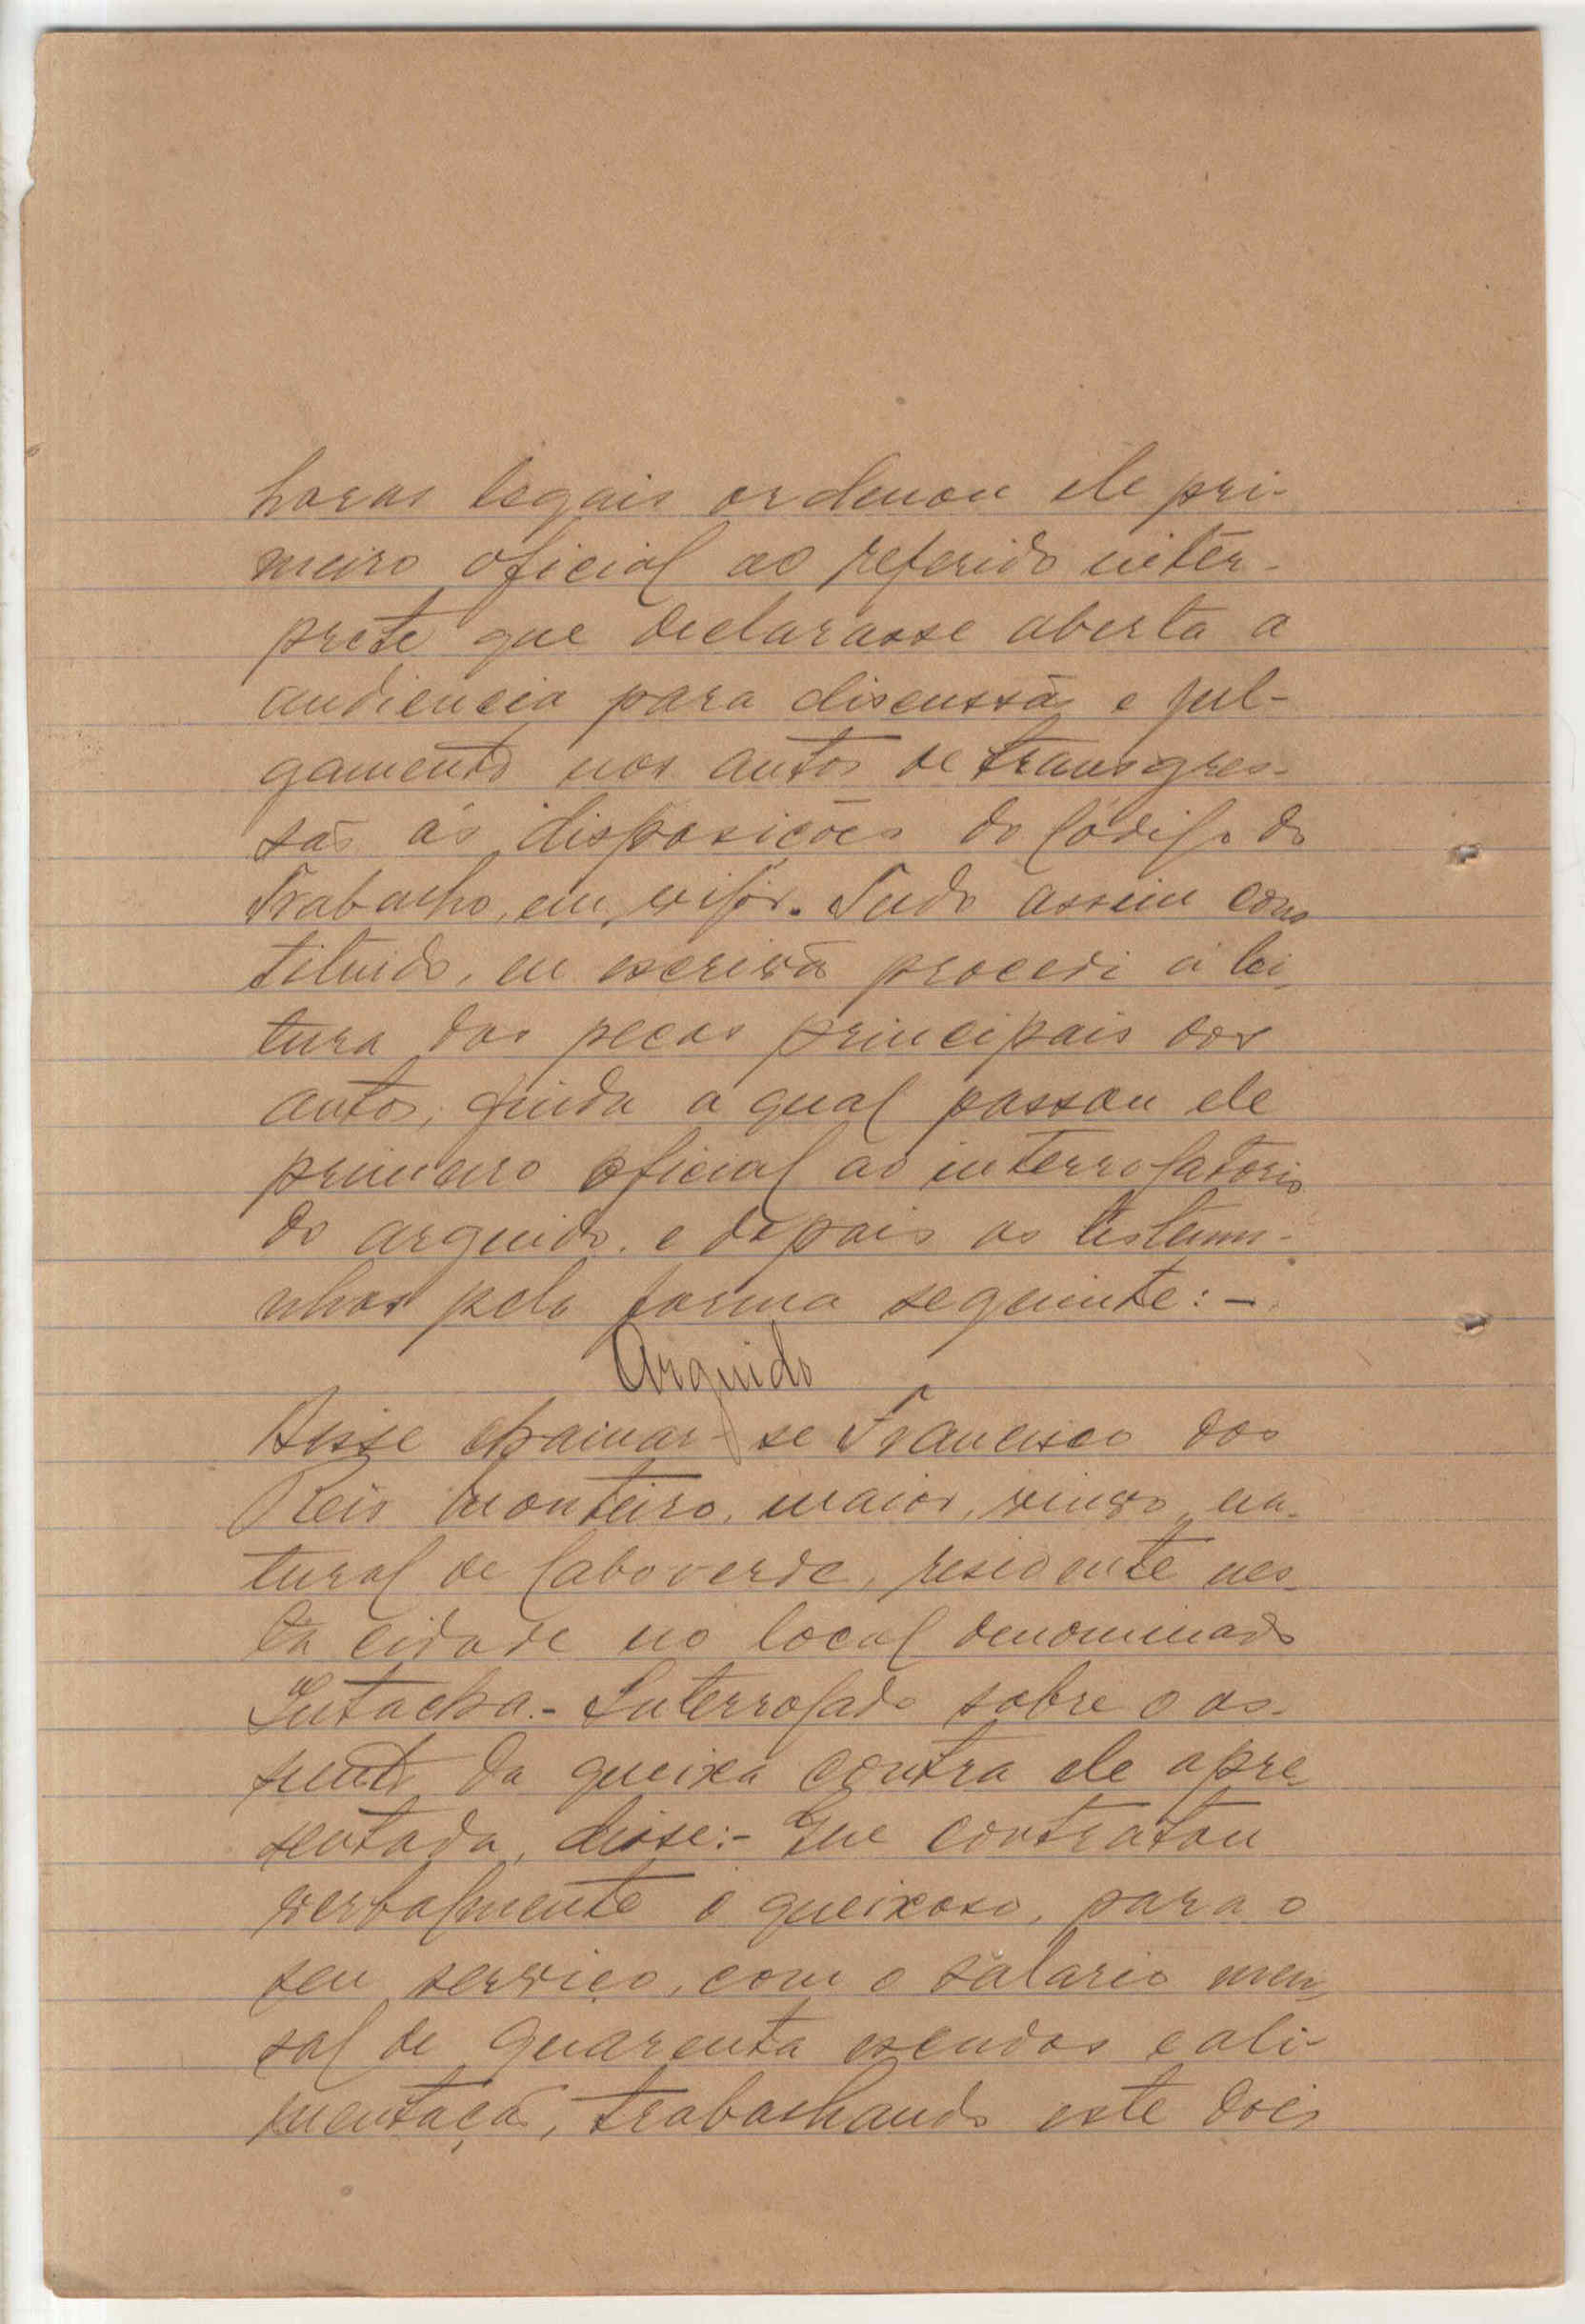 horas legais ordenou ele pri-
meiro oficial ao referido intér-
prete que declarasse aberta a
audiencia para discussão e jul-
gamento nos autos de transgres-
são ás disposições do Código do
Trabalho, em vigôr. Tudo assim cons
tituido, eu escrivão procedi á lei-
tura das peças principais dos
autos, finda a qual passou ele
primeiro oficial ao interrogatorio
do arguido e depois as testemu-
nhas pela forma seguinte: -
Arguido
Disse chamar-se Francisco dos
Reis Monteiro, maior, viuvo, na-
tural de Caboverde, residente nes-
ta cidade no local denominado
Intacha.- Interrogado sobre o as-
sunto da queixa contra ele apre-
sentada, disse:- Que contratou
verbalmente o queixoso, para o
seu serviço, com o salario men-
sal de quarenta escudos e ali-
mentação, trabalhando este dois